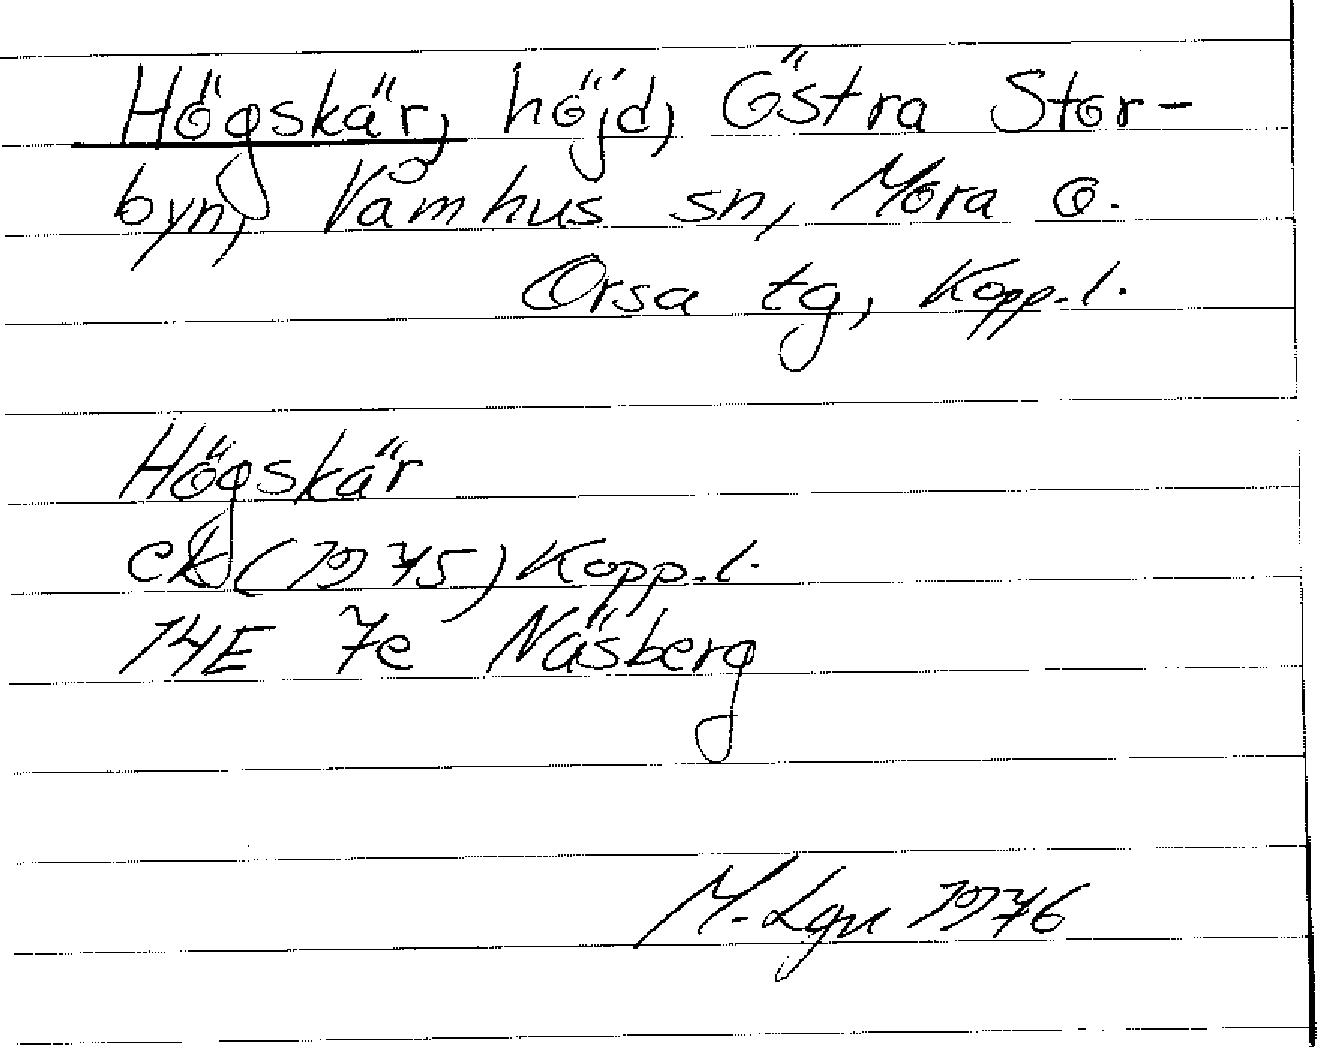 Högskär, höjd, Östra Stor-
byn, Våmhus sn, Mora o.
Orsa tg, Kopp.l.
Högskär
ek (1975) Kopp.l.
14E 7e Näsberg
M. Lgn 1976